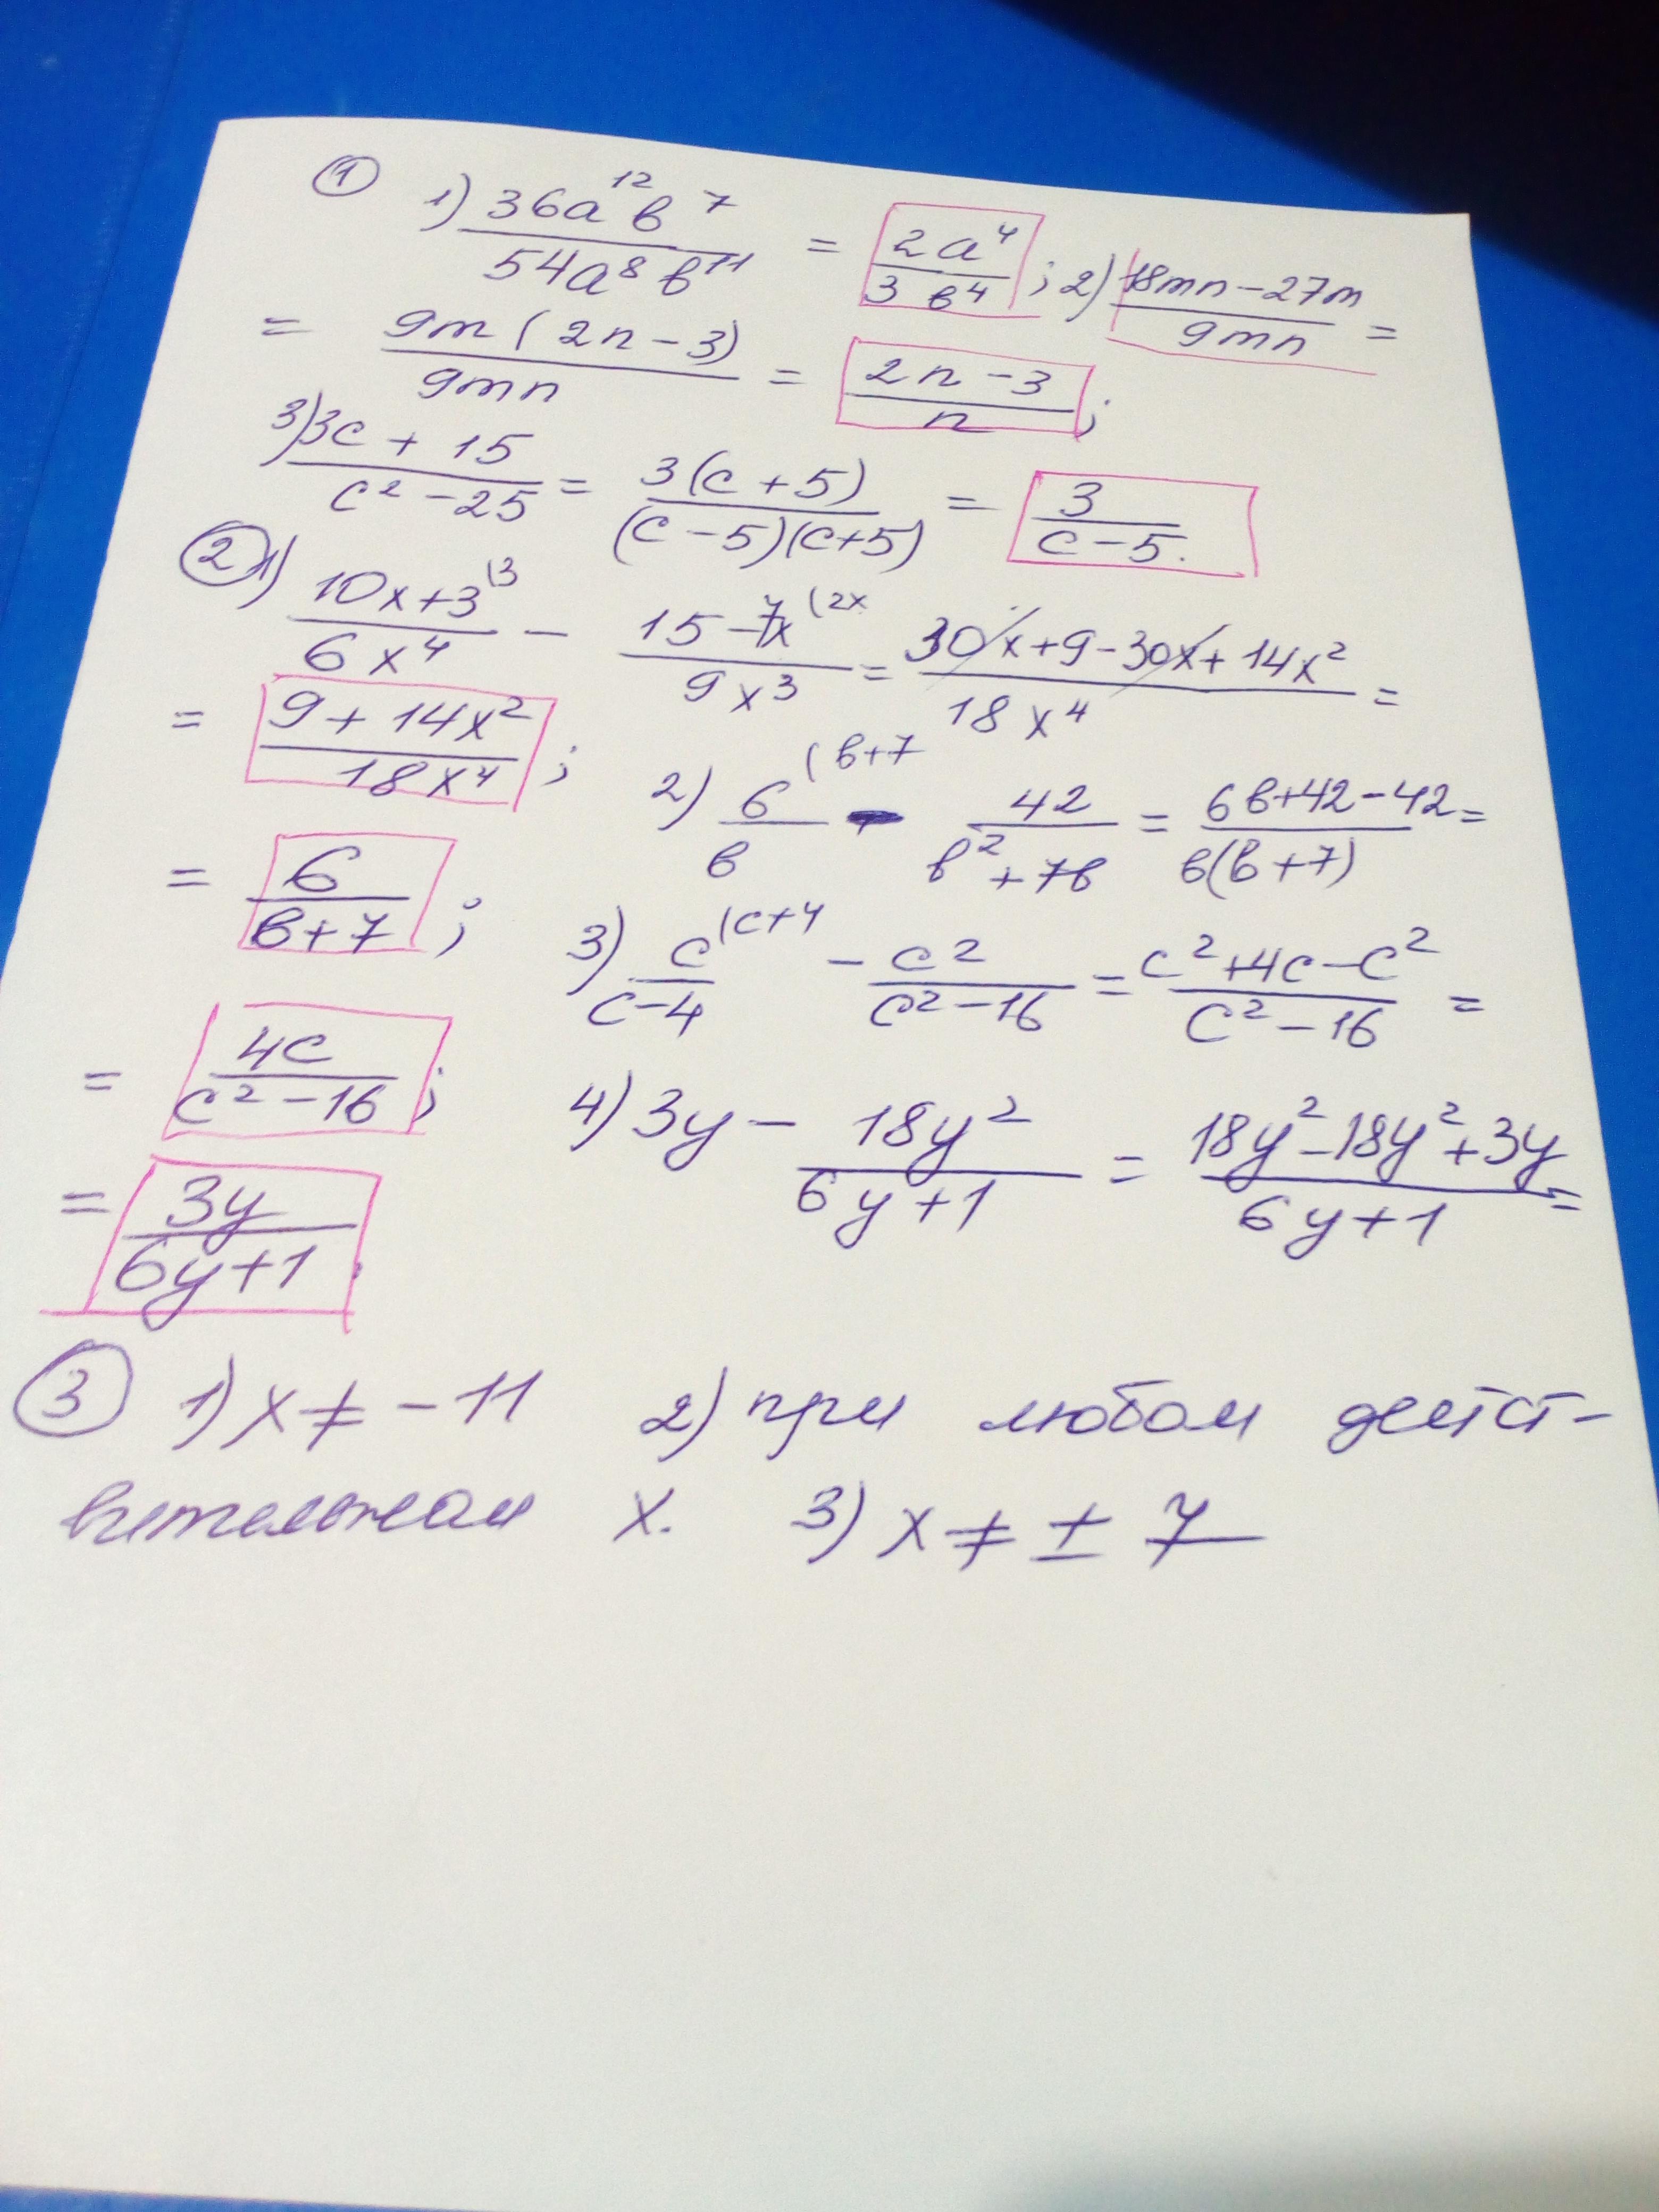 ① 1) 36a¹²b⁷ / 54a⁸b¹¹ = 2a⁴ / 3b⁴ ; 2) 18mn − 27m / 9mn =
= 9m(2n − 3) / 9mn = 2n − 3 / n ;
3) 3c + 15 / c² − 25 = 3(c + 5) / (c − 5)(c + 5) = 3 / c − 5.
② 1) 10x + 3 (3 / 6x⁴ − 15 − 7x (2x / 9x³ = 30x + 9 − 30x + 14x² / 18x⁴ =
= 9 + 14x² / 18x⁴ ; 2) 6 (b+7 / b − 42 / b² + 7b = 6b + 42 − 42 / b(b + 7) =
= 6 / b + 7 ; 3) c (c+4 / c − 4 − c² / c² − 16 = c² + 4c − c² / c² − 16 =
= 4c / c² − 16 ; 4) 3y − 18y² / 6y + 1 = 18y² − 18y² + 3y / 6y + 1 =
= 3y / 6y + 1.
③ 1) x ≠ −11 2) при любом дейст-
вительном x. 3) x ≠ ± 7